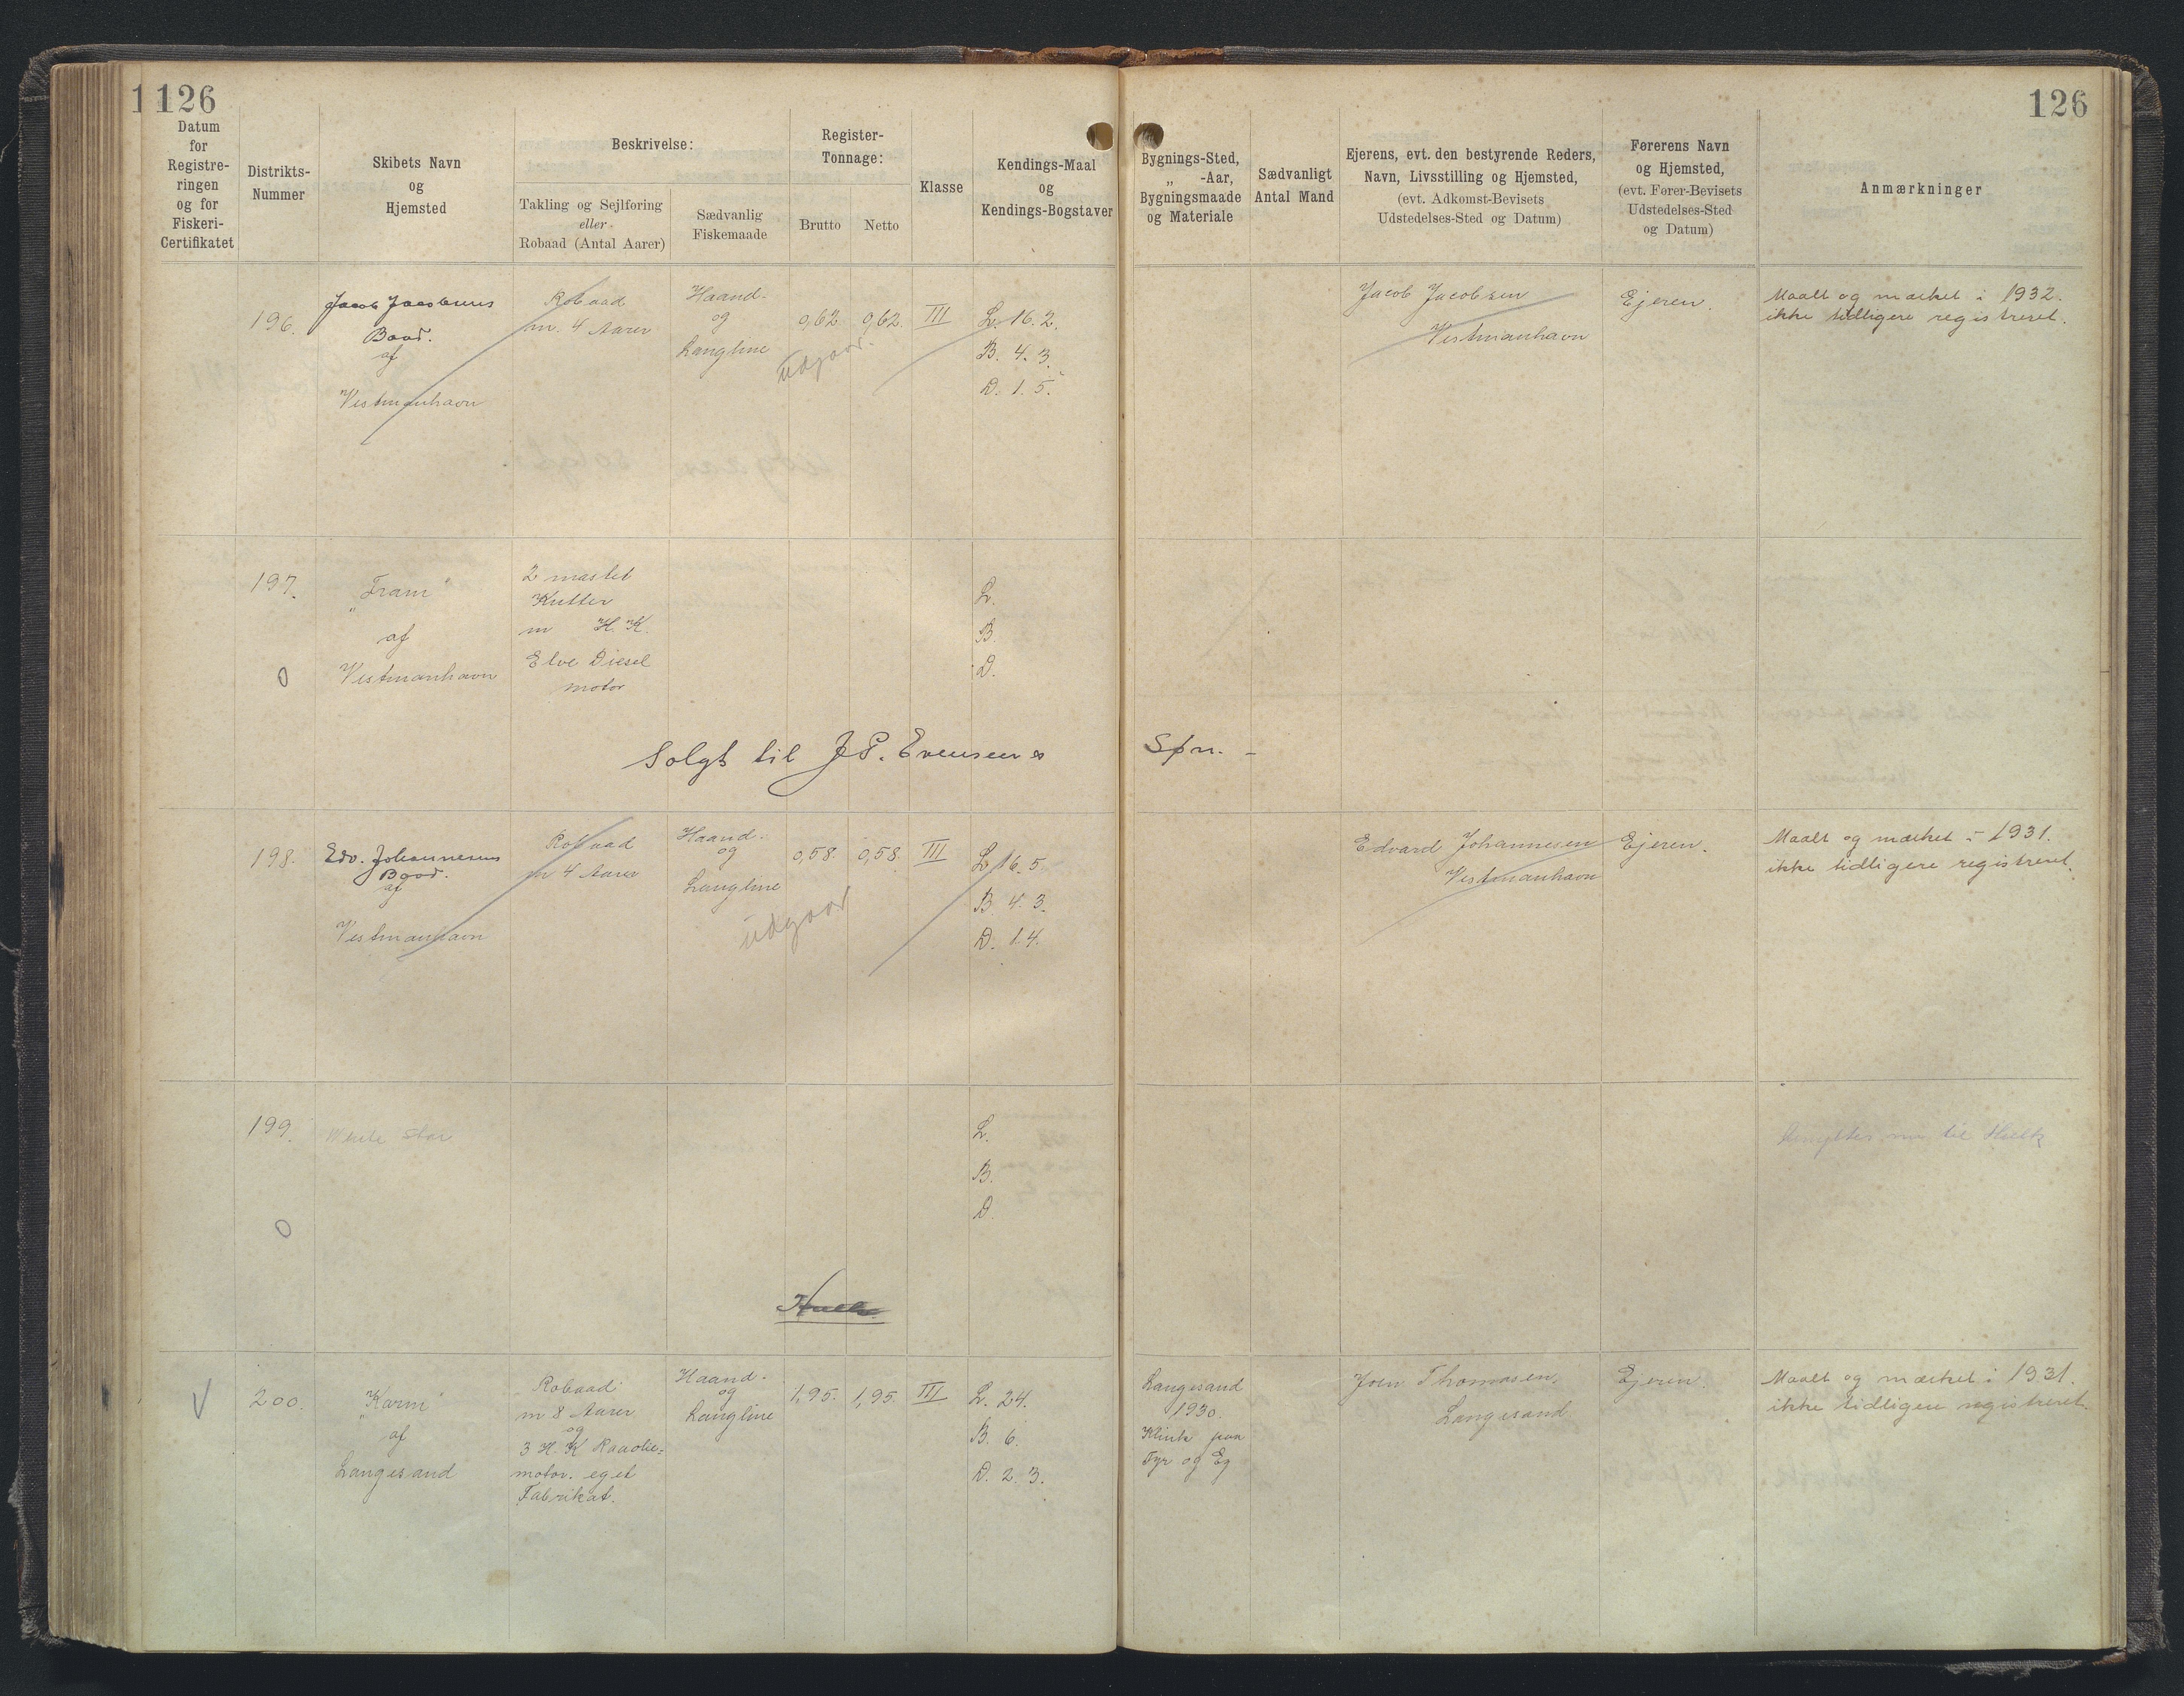 1126
126
Datum
for
Registre-
ringen
og for
Fiskeri-
Certifikatet
Distrikts-
Nummer
Skibets Navn
og
Hjemsted
Beskrivelse:
Takling og Sejlføring
eller
Robaad (Antal Aarer)
Sædvanlig
Fiskemaade
Register-
Tonnage:
Brutto
Netto
Klasse
Kendings-Maal
og
Kendings-Bogstaver
Bygnings-Sted,
„ -Aar,
Bygningsmaade
og Materiale
Sædvanligt
Antal Mand
Ejerens, evt. den bestyrende Reders,
Navn, Livsstilling og Hjemsted,
(evt. Adkomst-Bevisets
Udstedelses-Sted og Datum)
Førerens Navn
og Hjemsted,
(evt. Fører-Bevisets
Udstedelses-Sted
og Datum)
Anmærkninger
196.
Jacob Jacobsens
Baad.
af
Vestmanhavn
Robaad
m. 4 Aarer
Haand-
og
Langline
0,62
0,62.
udgaar.
III
L. 16. 2.
B. 4. 3.
D. 1. 5.
Jacob Jacobsen
Vestmanhavn
Ejeren.
Maalt og mærket i 1932.
ikke tidligere registreret.
197.
0
„Fram"
af
Vestmanhavn
2 mastet
Kutter
m H. K.
Elve Diesel
motor
L.
B.
D.
Solgt til J P. Evensens
Søn. -
198.
Edv. Johannesens
Baad.
af
Vestmanhavn
Robaad
m 4 Aarer
Haand-
og
Langline
0,58.
0,58
udgaar
III
L. 16. 5.
B. 4. 3.
D. 1.4.
Edvard Johannesen
Vestmanhavn
Ejeren.
Maalt og mærket i 1931.
ikke tidligere registreret.
199.
0
White Star
L.
B.
D.
nu til Hulk
Hulk
V
200.
„Karin"
af
Langesand
Robaad
m 8 Aarer
og
3 H. K Raaolie=
motor. eget
Fabrikat.
Haand-
og
Langline
1,95.
1,95
III
L. 24.
B. 6.
D. 2. 3.
Langesand
1930.
Klink paa
Fyr og Eg
Joen Thomasen.
Langesand
Ejeren.
Maalt og mærket i 1931.
ikke tidligere registreret.